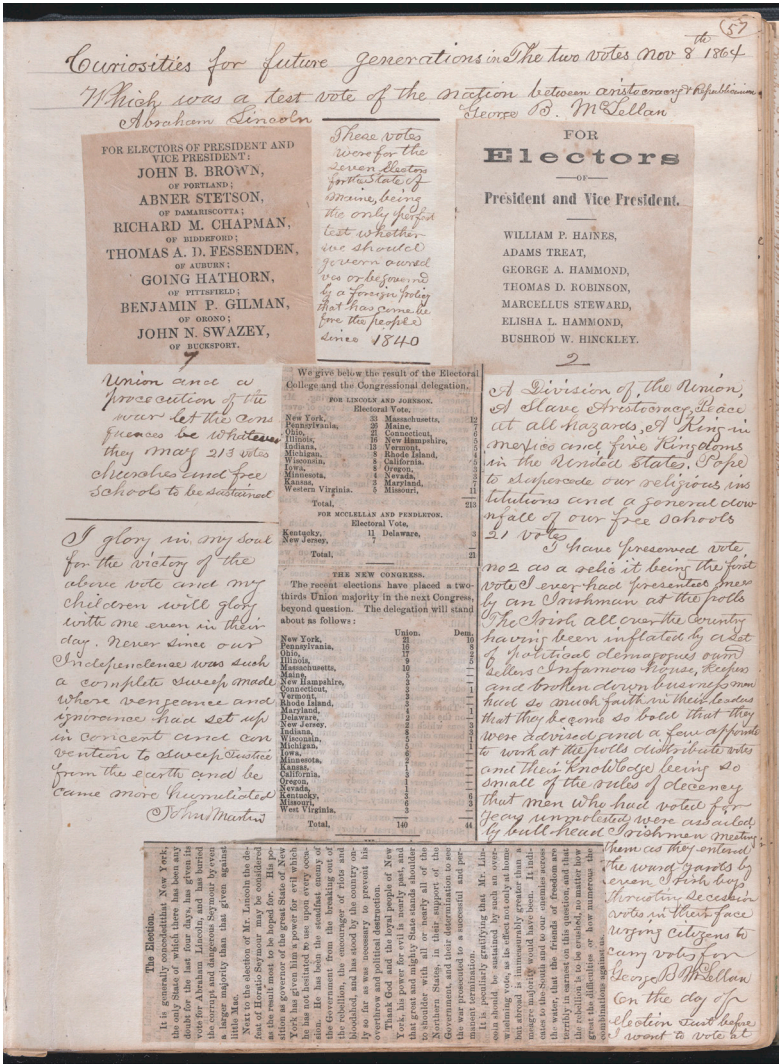 (57)
Curiosities for future generations in The two votes Nov 8th 1864
Which was a test vote of the nation between aristocracy & Republicanism
Abraham Lincoln
George B. McLellan
FOR ELECTORS OF PRESIDENT AND
VICE PRESIDENT:
JOHN B. BROWN,
OF PORTLAND;
ABNER STETSON,
OF DAMARISCOTTA;
RICHARD M. CHAPMAN,
OF BIDDEFORD;
THOMAS A. D. FESSENDEN,
OF AUBURN;
GOING HATHORN,
OF PITTSFIELD;
BENJAMIN P. GILMAN,
OF ORONO;
JOHN N. SWAZEY,
OF BUCKSPORT.
These votes
were for the
seven Electors
for the State of
Maine, being
the only perfect
test whether
we should
govern oursel
ves or be governed
by a foreign policy
that has come be
fore the people
since 1840
FOR
Electors
—OF—
President and Vice President.
WILLIAM P. HAINES,
ADAMS TREAT,
GEORGE A. HAMMOND,
THOMAS D. ROBINSON,
MARCELLUS STEWARD,
ELISHA L. HAMMOND,
BUSHROD W. HINCKLEY.
2
Union and a
prococution of the
war let the cons
quences be whatever
they may 213 votes
churches and free
schools to be sustained
I glory in my soul
for the victory of the
above vote and my
children will glory
with me even in their
day. Never since our
Independense was such
a complete sweep made
where vengeance and
ignorance had set up
in concert and con
vention to sweep justice
from the earth and be
came more humiliated
John Martin
We give below the result of the Electoral
College and the Congressional delegation.
FOR LINCOLN AND JOHNSON.
Electoral Vote.
New York, 33 Massachusetts, 12
Pennsylvania, 26 Maine, 7
Ohio, 21 Connecticut, 6
Illinois, 16 New Hampshire, 5
Indiana, 13 Vermont, 5
Michigan, 8 Rhode Island, 4
Wisconsin, 8 California, 5
Iowa, 8 Oregon, 3
Minnesota, 4 Nevada, 3
Kansas, 3 Maryland, 7
Western Virginia, 5 Missouri, 11
Total, 213
FOR MCCLELLAN AND PENDLETON.
Electoral Vote,
Kentucky, 11 Delaware, 3
New Jersey, 7
Total, 21
THE NEW CONGRESS.
The recent elections have placed a two-
thirds Union majority in the next Congress,
beyond question. The delegation will stand
about as follows:
Union. Dem.
New York, 21 10
Pennsylvania, 16 8
Ohio, 17 2
Illinois, 9 5
Massachusetts, 10
Maine, 5
New Hampshire, 3
Connecticut, 3 1
Vermont, 3
Rhode Island,
Maryland,
Delaware,
New Jersey, 2
Indiana, 8 3
Wisconsin, 5 1
Michigan, 5 1
Iowa, 6
Minnesota, 2
Kansas, 1
California, 3
Oregon, 1
Nevada, 1
Kentucky, 3 6
Missouri, 6 3
West Virginia, 3
Total, 140 44
A Division of, the Union,
A Slave Aristocracy, Peace
at all hazards, A King in
mexico and five Kingdoms
in the United States, Pope
to supercede our religious ins
titutions and a general dow
nfall of our free schools
21 votes
I have preserved vote
no 2 as a relic it being the first
vote I ever had presented me
by an Irishman at the polls
The Irish all over the country
having been inflated by a set
of political demagogues
sellers Infamous house keepers
and broken down business men
had so much faith in their leaders
that they become so bold that they
were advised and a few appointed
to work at the polls distribute votes
and their Knowledge being so
small of the rules of decency
that men who had voted for
years unmolested were assailed
by bull-head Irishmen meeting
them as they entered
The ward yards by
even Irish boys
thrusting secession
votes in their face
urging citizens to
carry votes for
George B McLellan
On the day of
election just before
I went to vote at
The Election.
It is generally conceded that New York,
the only State of which there has been any
doubt for the last four days, has given its
vote for Abraham Lincoln, and has buried
the corrupt and dangerous Seymour by even
a larger majority than that given against
little Mac.
Next to the election of Mr. Lincoln the de-
feat of Horatio Seymour may be considered
as the result most to be hoped for. His po-
sition as governor of the great State of New
York has given him a power for evil which
he has not hesitated to use upon every occa-
sion. He has been the steadfast enemy of
the Government from the breaking out of
the rebellion, the encourager of riots and
bloodshed, and has stood by the country on-
ly so far as was necessary to prevent his
overthrow and political destruction.
Thank God and the loyal people of New
York, his power for evil is nearly past, and
that great and mighty State stands shoulder
to shoulder with all or nearly all of the
northern States, in their support of the
Government and their determination to see
the war prosecuted to a successful and per-
manent termination.
It is peculiarly gratifying that Mr. Lin-
coln should be sustained by such an over-
whelming vote, as its effect not only at home
but abroad is immeasurably greater than a
meagre majority would have been. It indi-
cates to the South and to our enemies across
the water, that the friends of freedom are
terribly in earnest on this question, and that
the rebellion is to be crushed, no matter how
great the difficulties or how numerous the